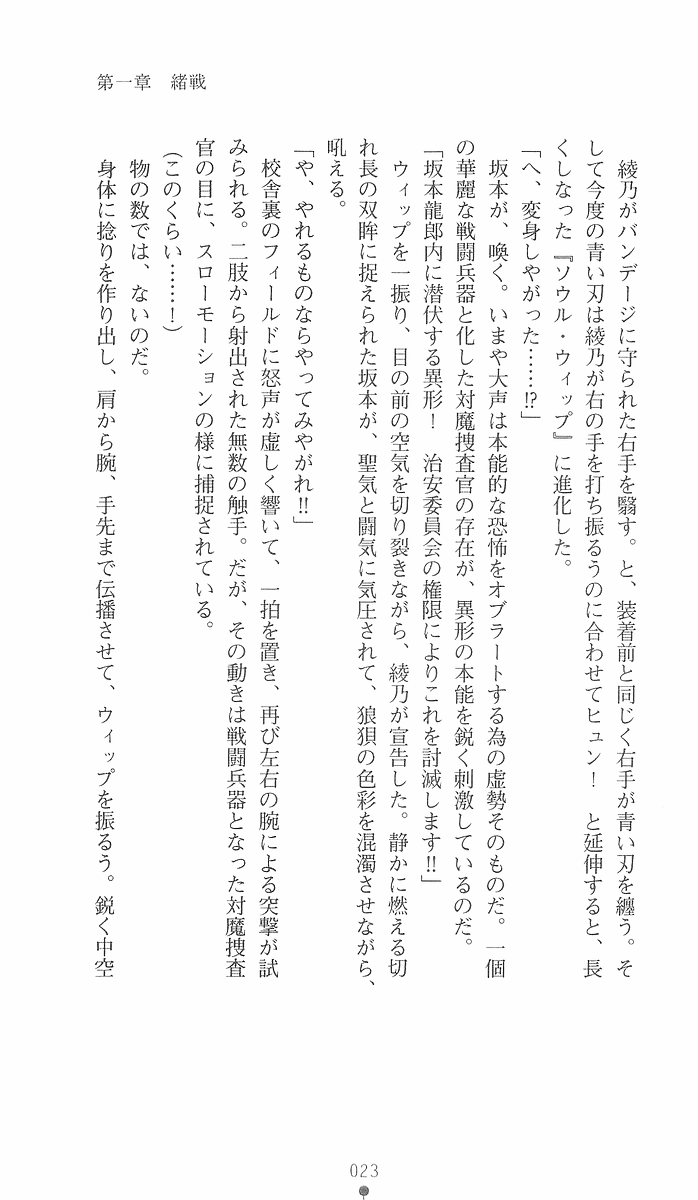 第一章　緒戦
　綾乃がバンデージに守られた右手を翳す。と、装着前と同じく右手が青い刃を纏う。そ
して今度の青い刃は綾乃が右の手を打ち振るうのに合わせてヒュン！　と延伸すると、長
くしなった『ソウル・ウィップ』に進化した。
「へ、変身しやがった……!?」
　坂本が、喚く。いまや大声は本能的な恐怖をオブラートする為の虚勢そのものだ。一個
の華麗な戦闘兵器と化した対魔捜査官の存在が、異形の本能を鋭く刺激しているのだ。
「坂本龍郎内に潜伏する異形！　治安委員会の権限によりこれを討滅します!!」
　ウィップを一振り、目の前の空気を切り裂きながら、綾乃が宣告した。静かに燃える切
れ長の双眸に捉えられた坂本が、聖気と闘気に気圧されて、狼狽の色彩を混濁させながら、
吼える。
「や、やれるものならやってみやがれ!!」
　校舎裏のフィールドに怒声が虚しく響いて、一拍を置き、再び左右の腕による突撃が試
みられる。二肢から射出された無数の触手。だが、その動きは戦闘兵器となった対魔捜査
官の目に、スローモーションの様に捕捉されている。
（このくらい……！）
　物の数では、ないのだ。
　身体に捻りを作り出し、肩から腕、手先まで伝播させて、ウィップを振るう。鋭く中空
023